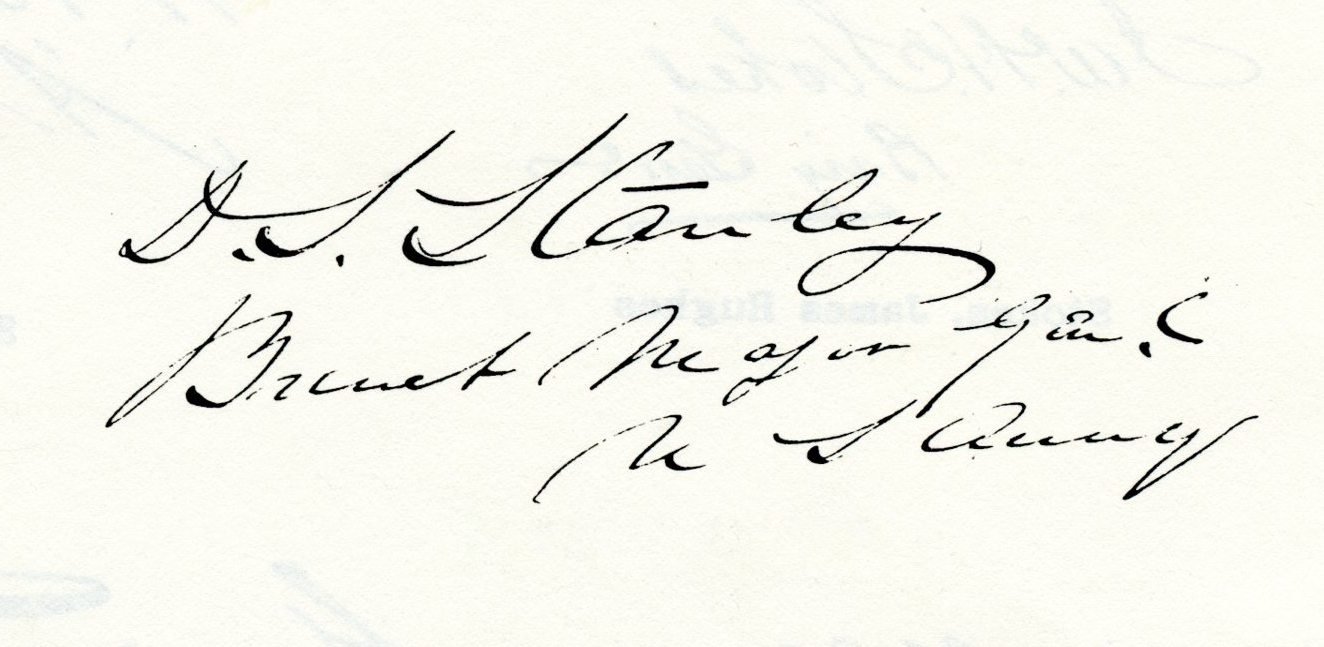 D. S. Stanley
Brevet Major Gen.l
U S Army